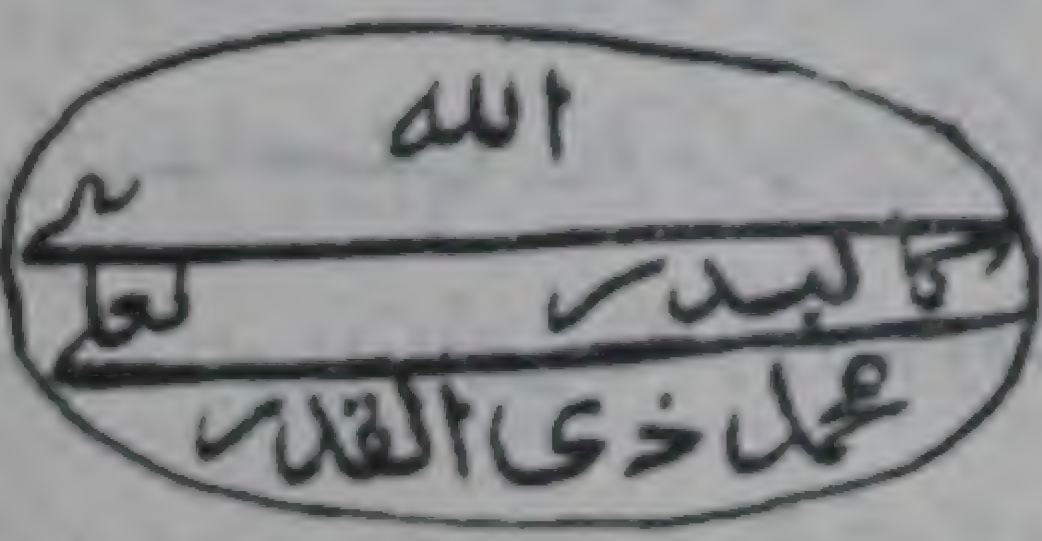 الله
كالبدر
محمد ذى القدر